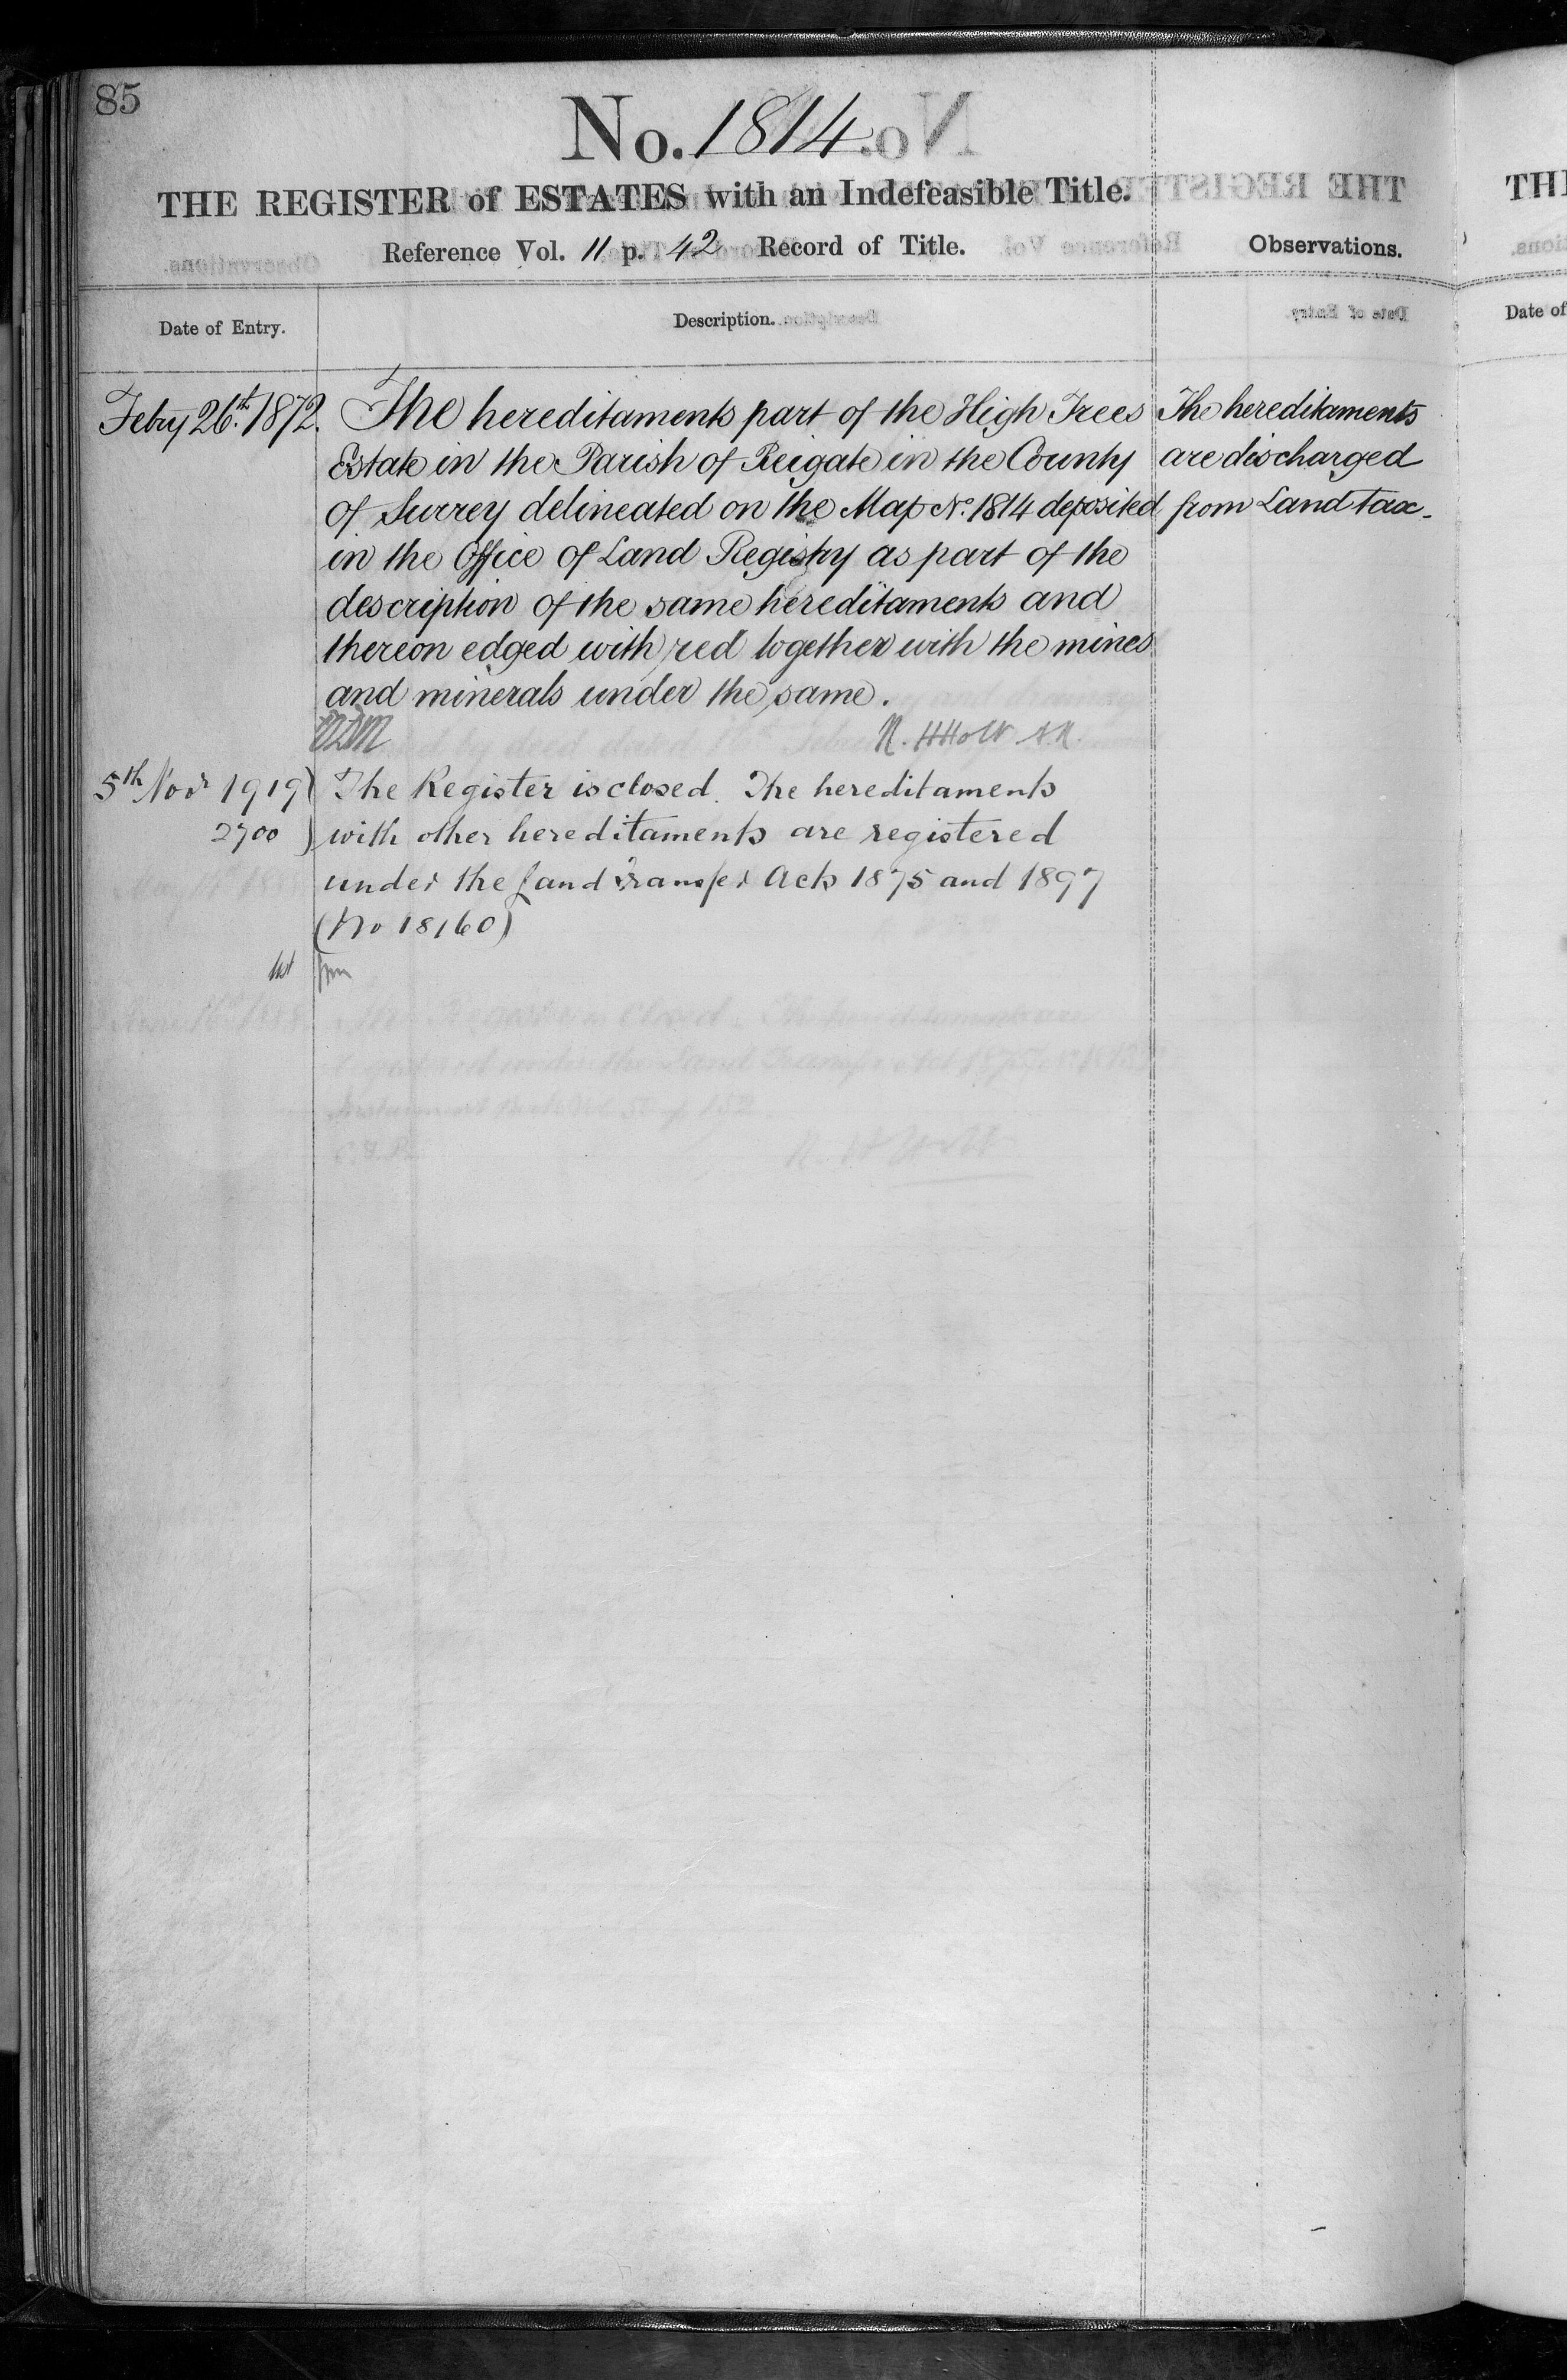 85
No. 1814
THE REGISTER of ESTATES with an Indefeasible Title.
Reference Vol. 11 p. 42 Record of Title.
Observations.
Date of Entry.
Description.
Feby 26th. 1872.
The hereditaments part of the High Trees
Estate in the Parish of Reigate in the County
of Surrey delineated on the Map No. 1814 deposited
in the Office of Land Registry as part of the
description of the same hereditaments and
thereon edged with red together with the mines
and minerals under the same.
The hereditaments
are discharged
from Land tax.
5th Novr 1919
2700
The Register is closed. The hereditaments
with other hereditaments are registered
under the Land Transfer Acts 1875 and 1897
(No 18160)
TH
Date of